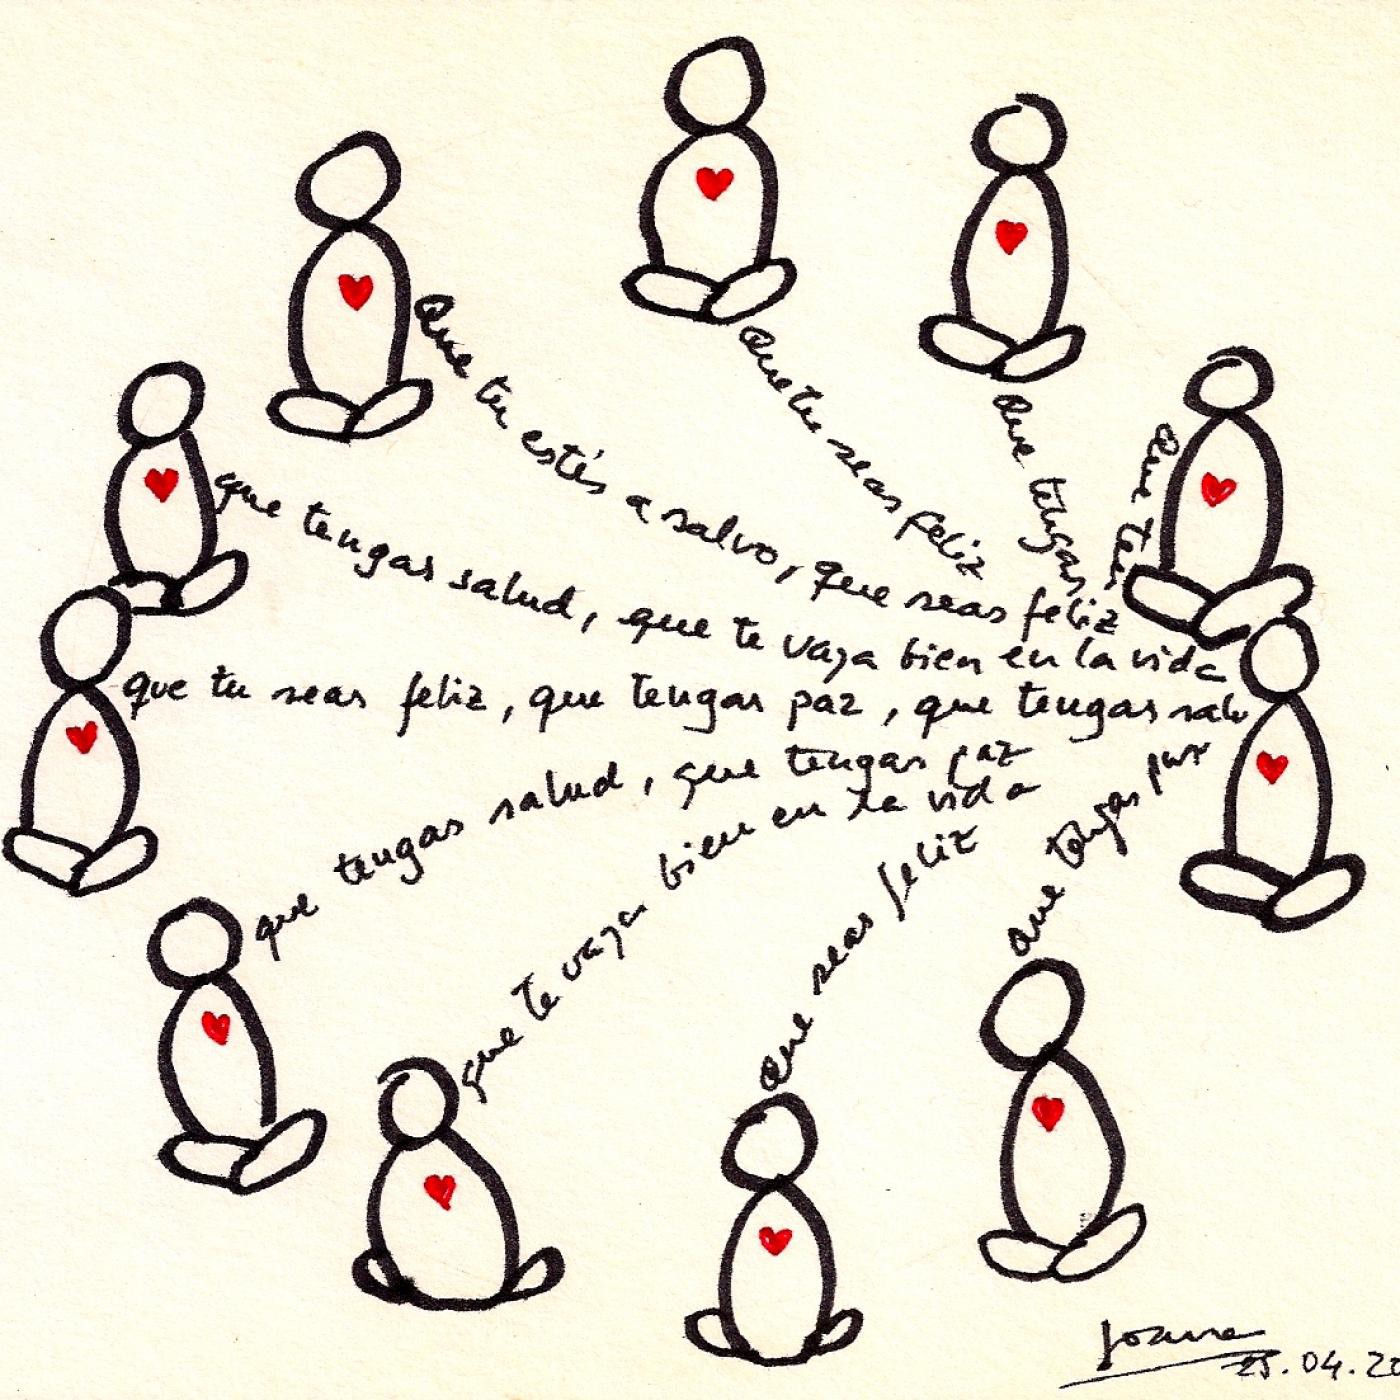 Que tu estés a salvo, que seas feliz
Que tu seas feliz
Que tengas
Que
que tengas salud, que te vaya bien en la vida
que tu seas feliz, que tengas paz, que tengas salu
que tengas salud, que tengas paz
que te vaya bien en la vida
Que seas feliz
Que tengas paz
25.04.20